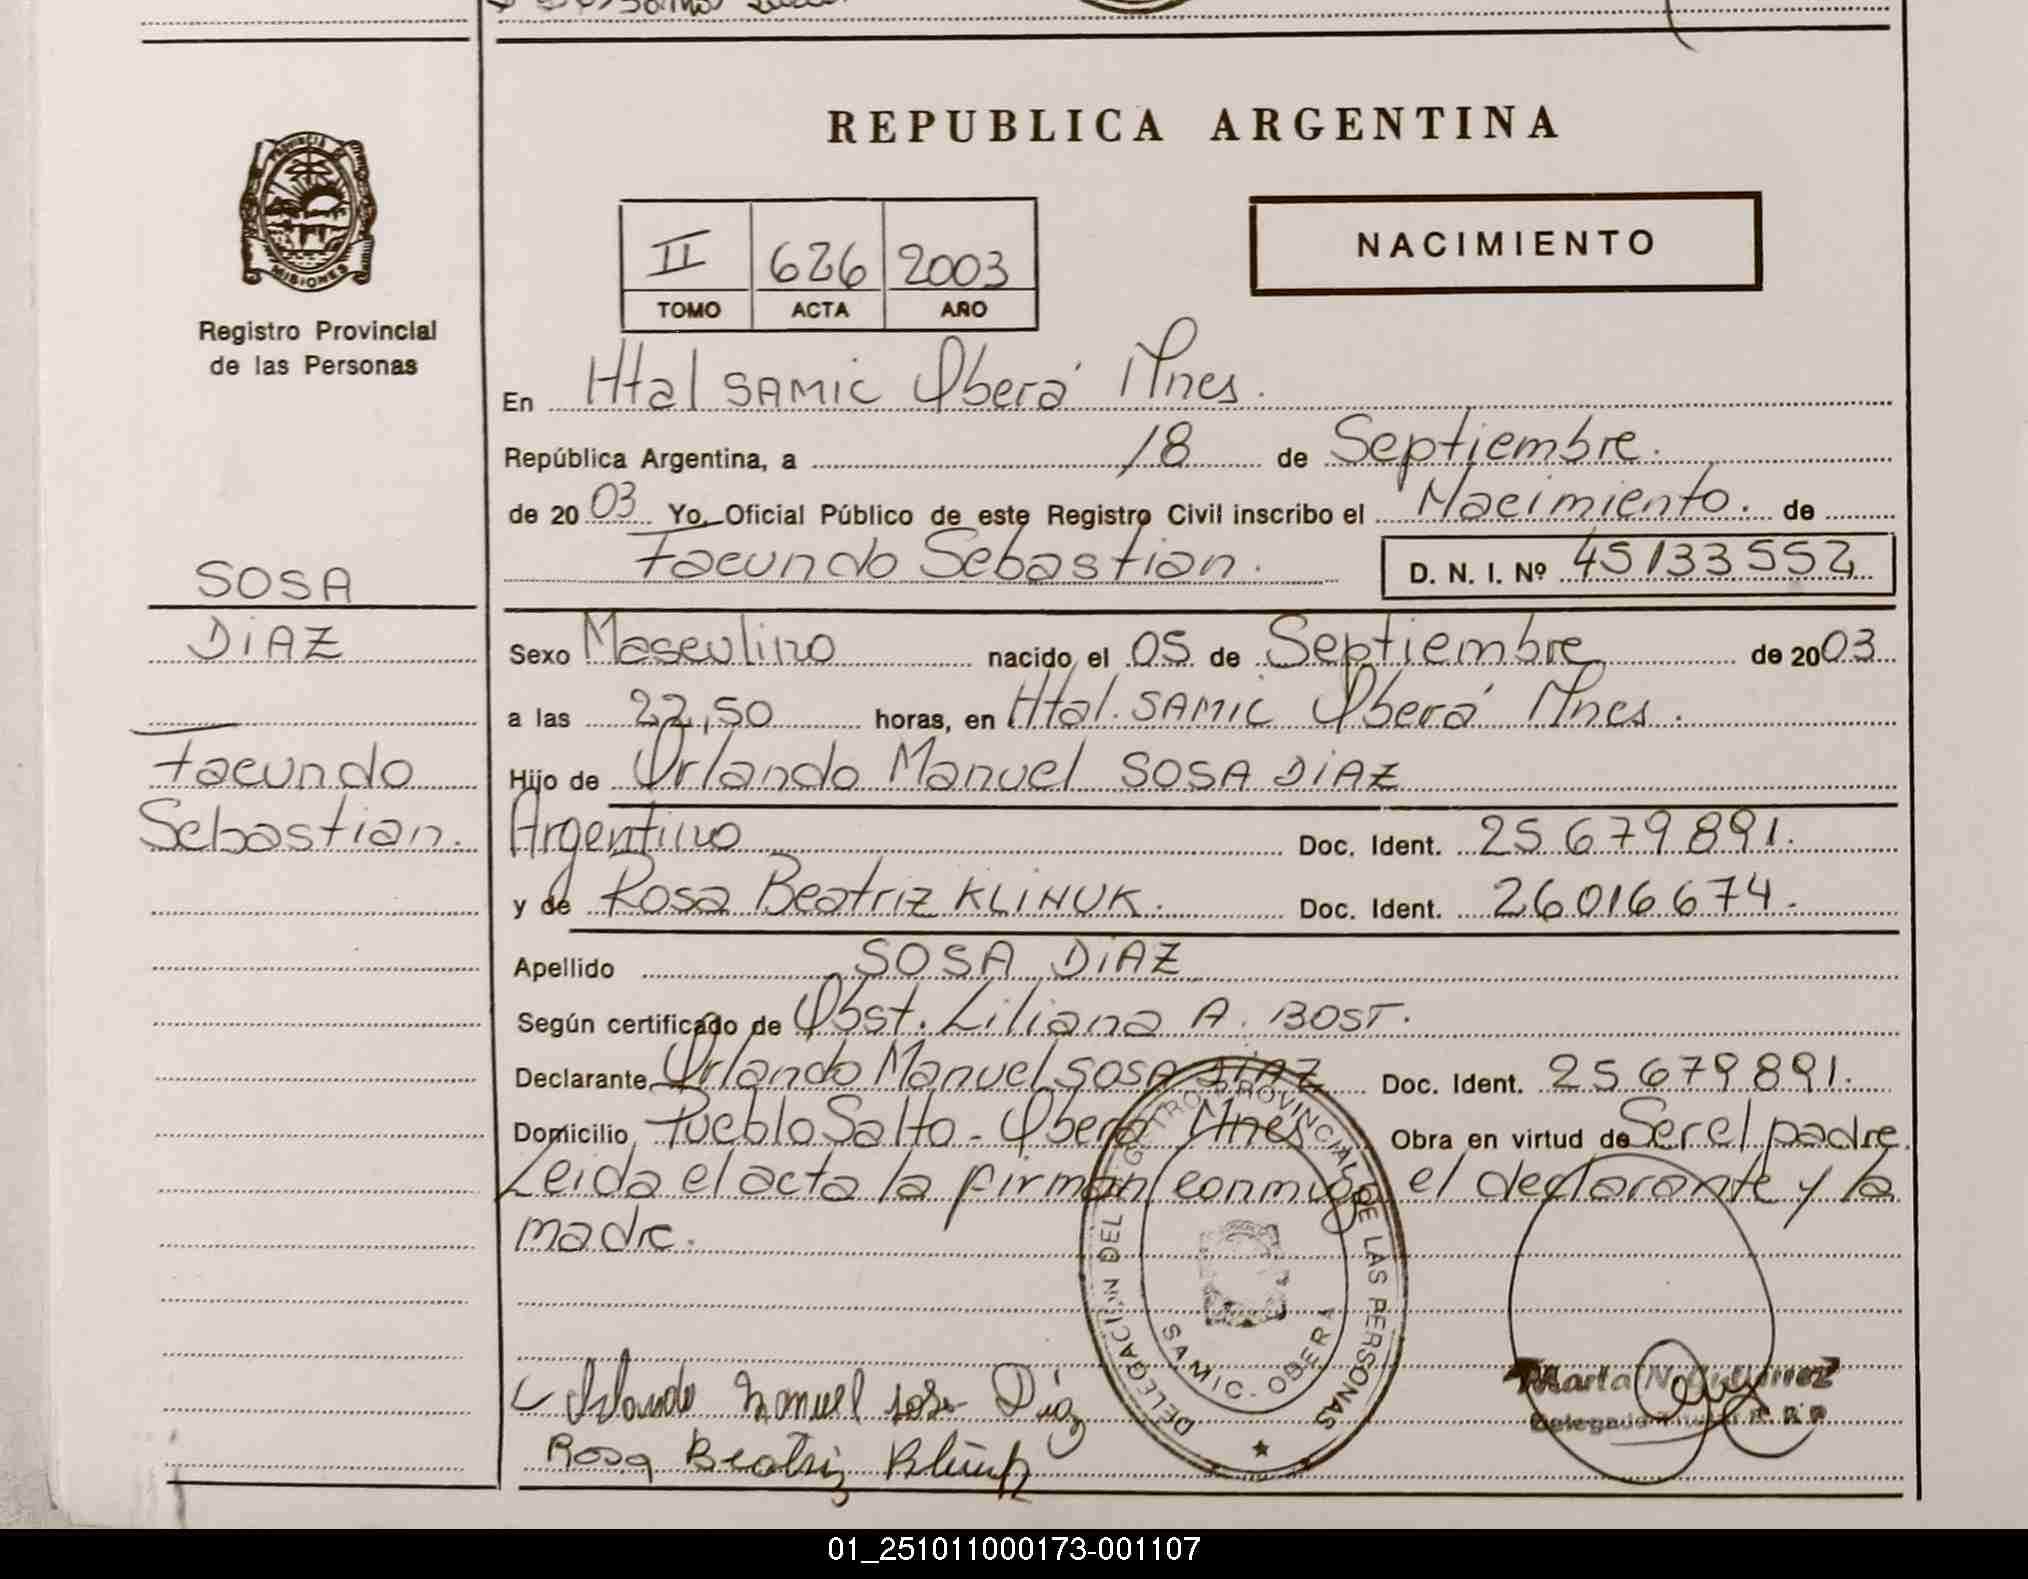 REPUBLICA ARGENTINA
PROVINCIA DE
MISIONES
Registro Provincial
de las Personas
II 626 2003
TOMO ACTA AÑO
NACIMIENTO
En Htal SAMIC Oberá Mnes.
República Argentina, a 18 de Septiembre.
de 2003 Yo, Oficial Público de este Registro Civil inscribo el Nacimiento. de
Facundo Sebastian. D. N. I. Nº 45133552
SOSA
DIAZ
Facundo
Sebastian.
Sexo Masculino nacido el 05 de Septiembre de 2003
a las 22,50 horas, en Htal. SAMIC Oberá Mnes.
Hijo de Orlando Manuel SOSA DIAZ
Argentino Doc. Ident. 25679891.
y de Rosa Beatriz KLINUK. Doc. Ident. 26016674.
Apellido SOSA DIAZ
Según certificado de Obst. Liliana A. BOST.
Declarante Orlando Manuel SOSA DIAZ Doc. Ident. 25679891.
Domicilio Pueblo Salto - Oberá Mnes Obra en virtud de Ser el padre.
Leida el acta la firman conmigo el declarante y la
madre.
DELEGACION DEL REGISTRO PROVINCIAL DE LAS PERSONAS
SAMIC - OBERA
Orlando Manuel Sosa Diaz
Rosa Beatriz
Marta N. Gutierrez
01_251011000173-001107